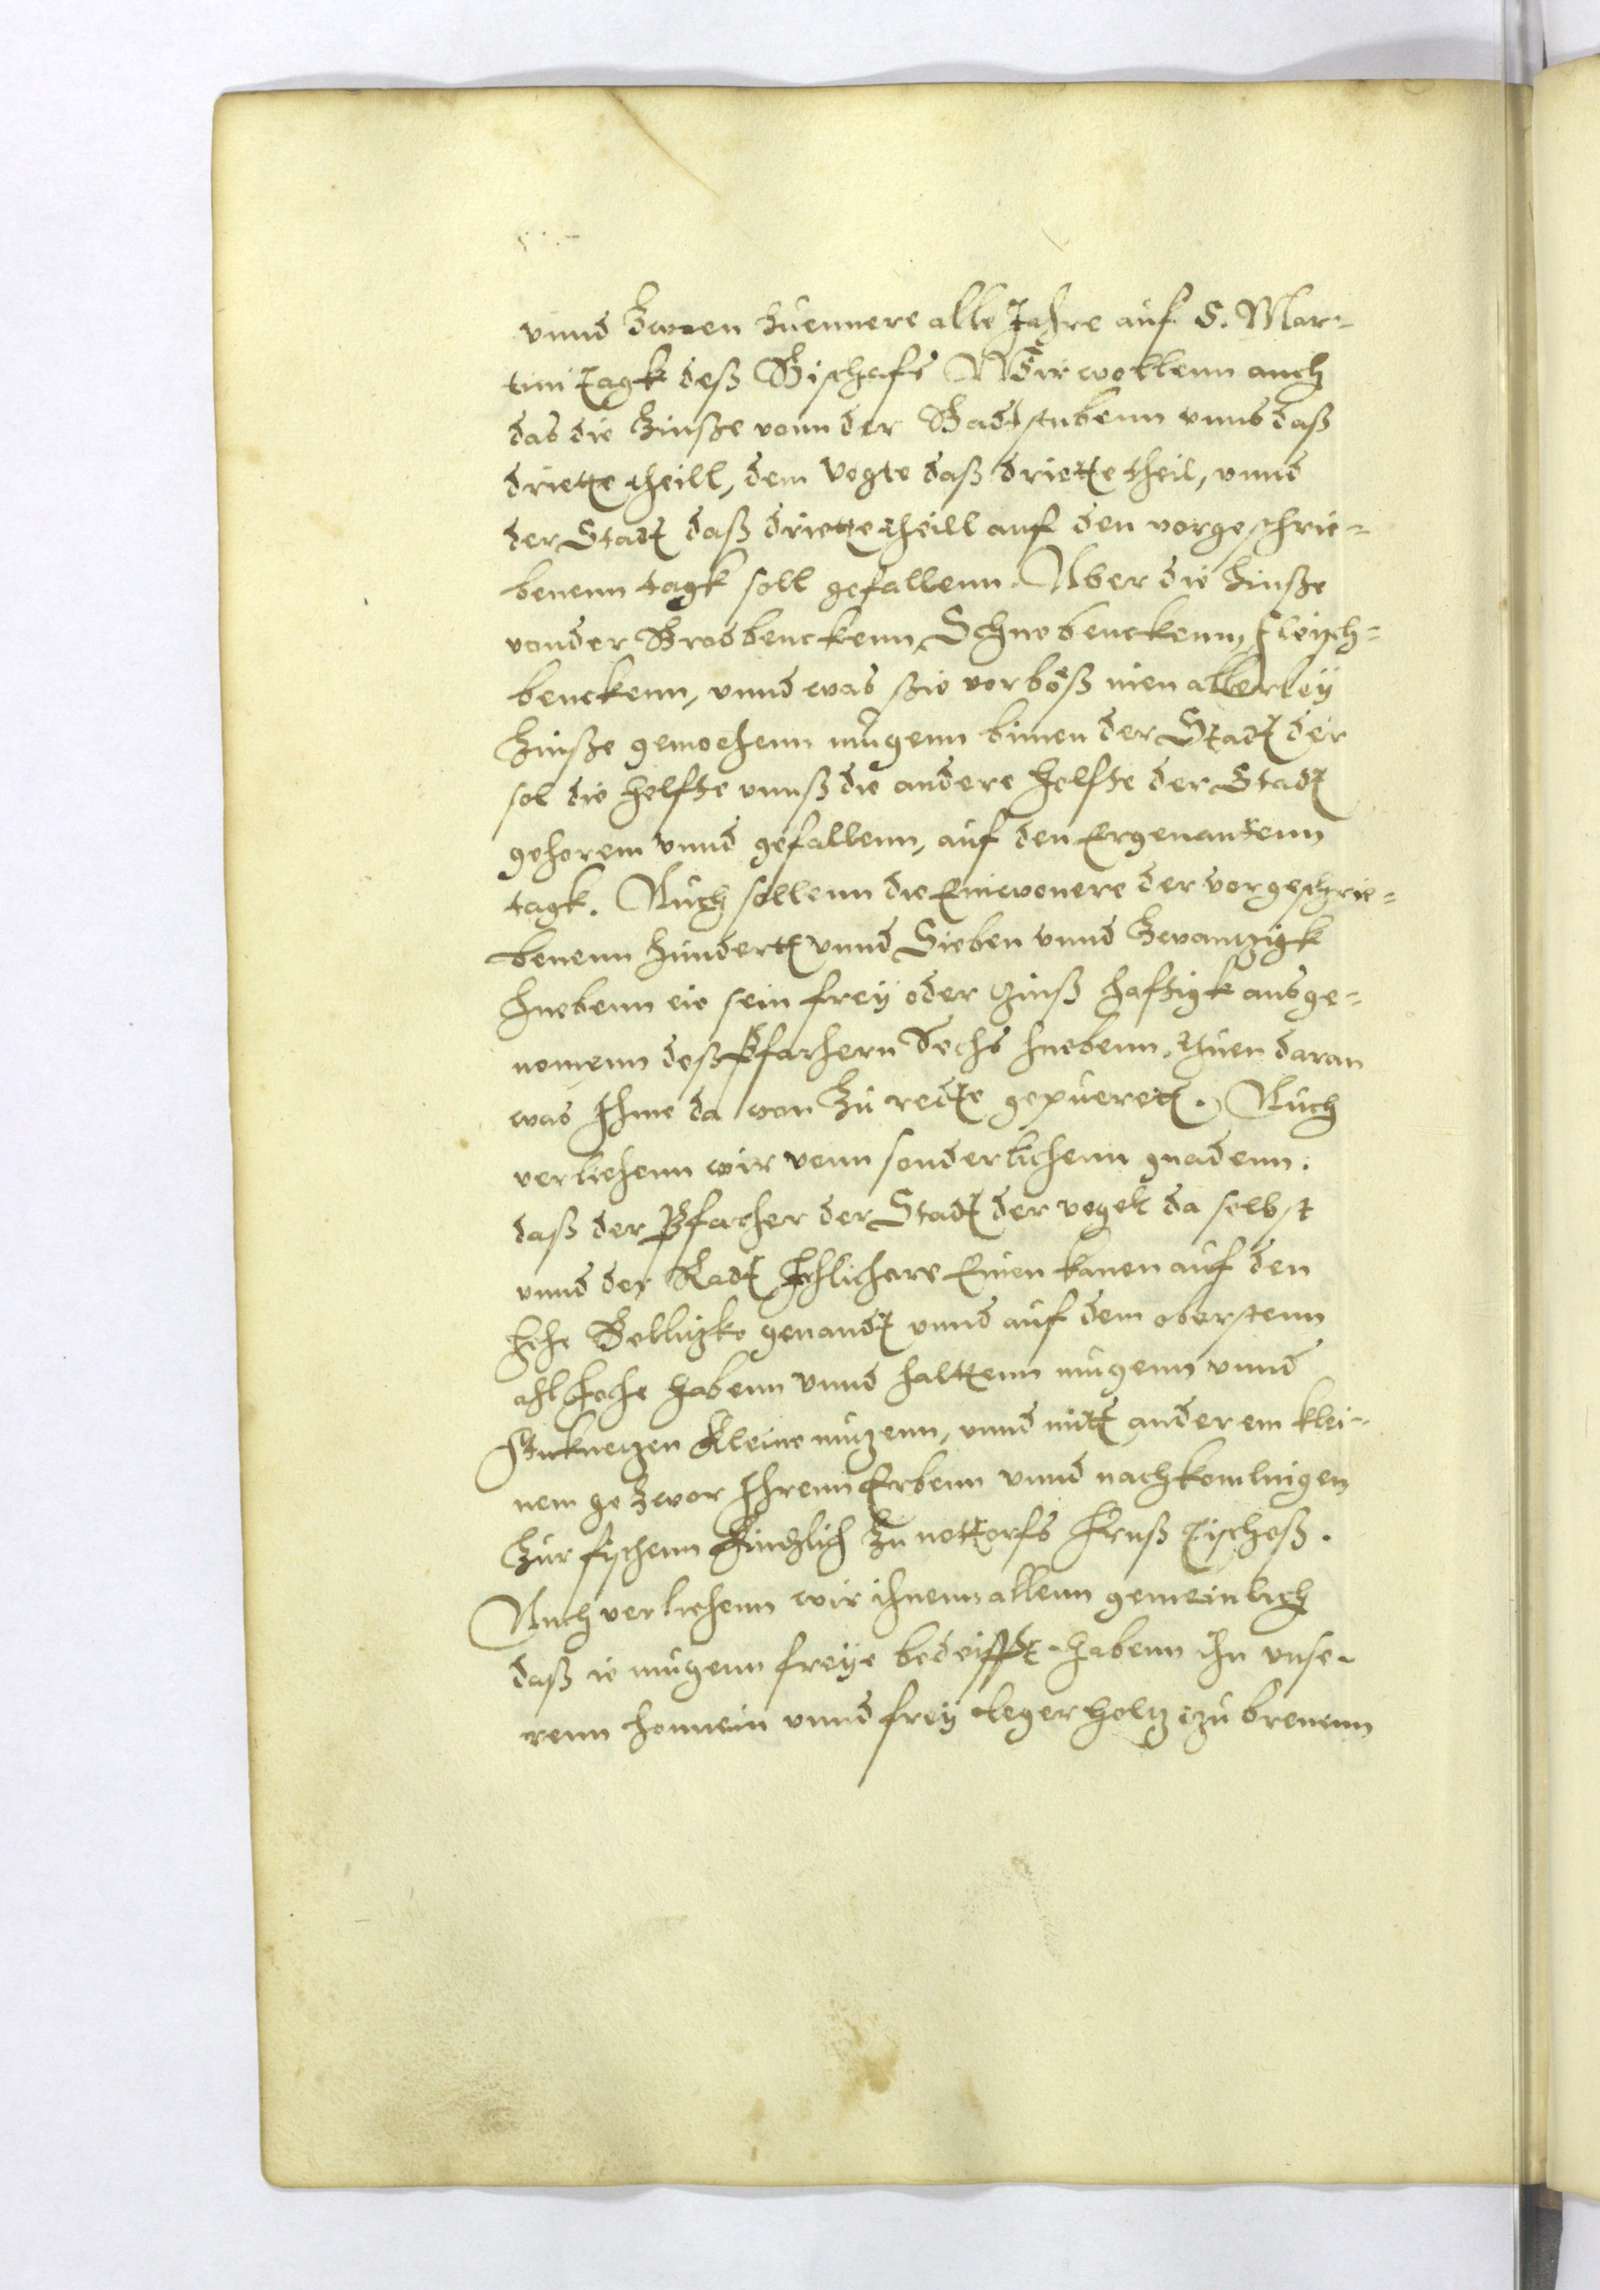 vnnd Zween huennere alle Jahre auf S. Mar-
tini Tagk deß Bischofs Wir wollenn auch
das die Zinße vonn der Badtstubenn vnns daß
driette theill, dem Vogte daß driette theil, vnnd
der Stadt daß driette theill auf den vorgeschrie-
benenn tagk soll gefallenn. Aber die Zinße
von der Brodbenckenn, Schuobenckenn, Fleisch-
benckenn, vnnd was sie vorböß nien allerley
Zinße gemachenn mügenn binnen der Stadt der
sol die helfte vnnß die andere helfte der Stadt
gehorenn vnnd gefallenn, auf den Ergenantenn
tagk. Auch sollenn die Einwonere der vorgeschrie-
benenn hundertt vnnd Sieben vnnd Zwantzigk
huebenn eie sein frey oder Zinß haftigk ausge-
nomenn deß Pfarhern Sechs huebenn, thuen daran
was Ihme da von Zu rechte gepuerett. Auch
verliehenn wir vonn sonderlichenn gnadenn.
daß der Pfarher der Stadt der vogt da selbst
vnnd der Radt Ichlichere Einen kanen auf den
sehe genandt vnnd auf dem oberstenn
habenn vnnd haltenn mugenn vnnd
Kleine nutzenn, vnnd mitt anderem klei-
nem ge Zwor Ihrenn Erbenn vnnd nachkomlingen
Zur fischenn Zu nottorfs Ihruß Tischeß.
Auch verliehenn wir ihnenn allenn gemeinlich
daß ie mugenn freye habenn In vnse-
renn vnnd frey legerholtz Zu brenenn